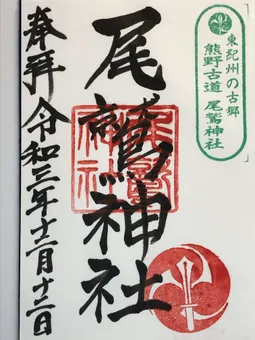 東紀州の古郷
熊野古道 尾鷲神社
尾鷲神社
奉拝 令和三年十二月十二日
尾鷲神社